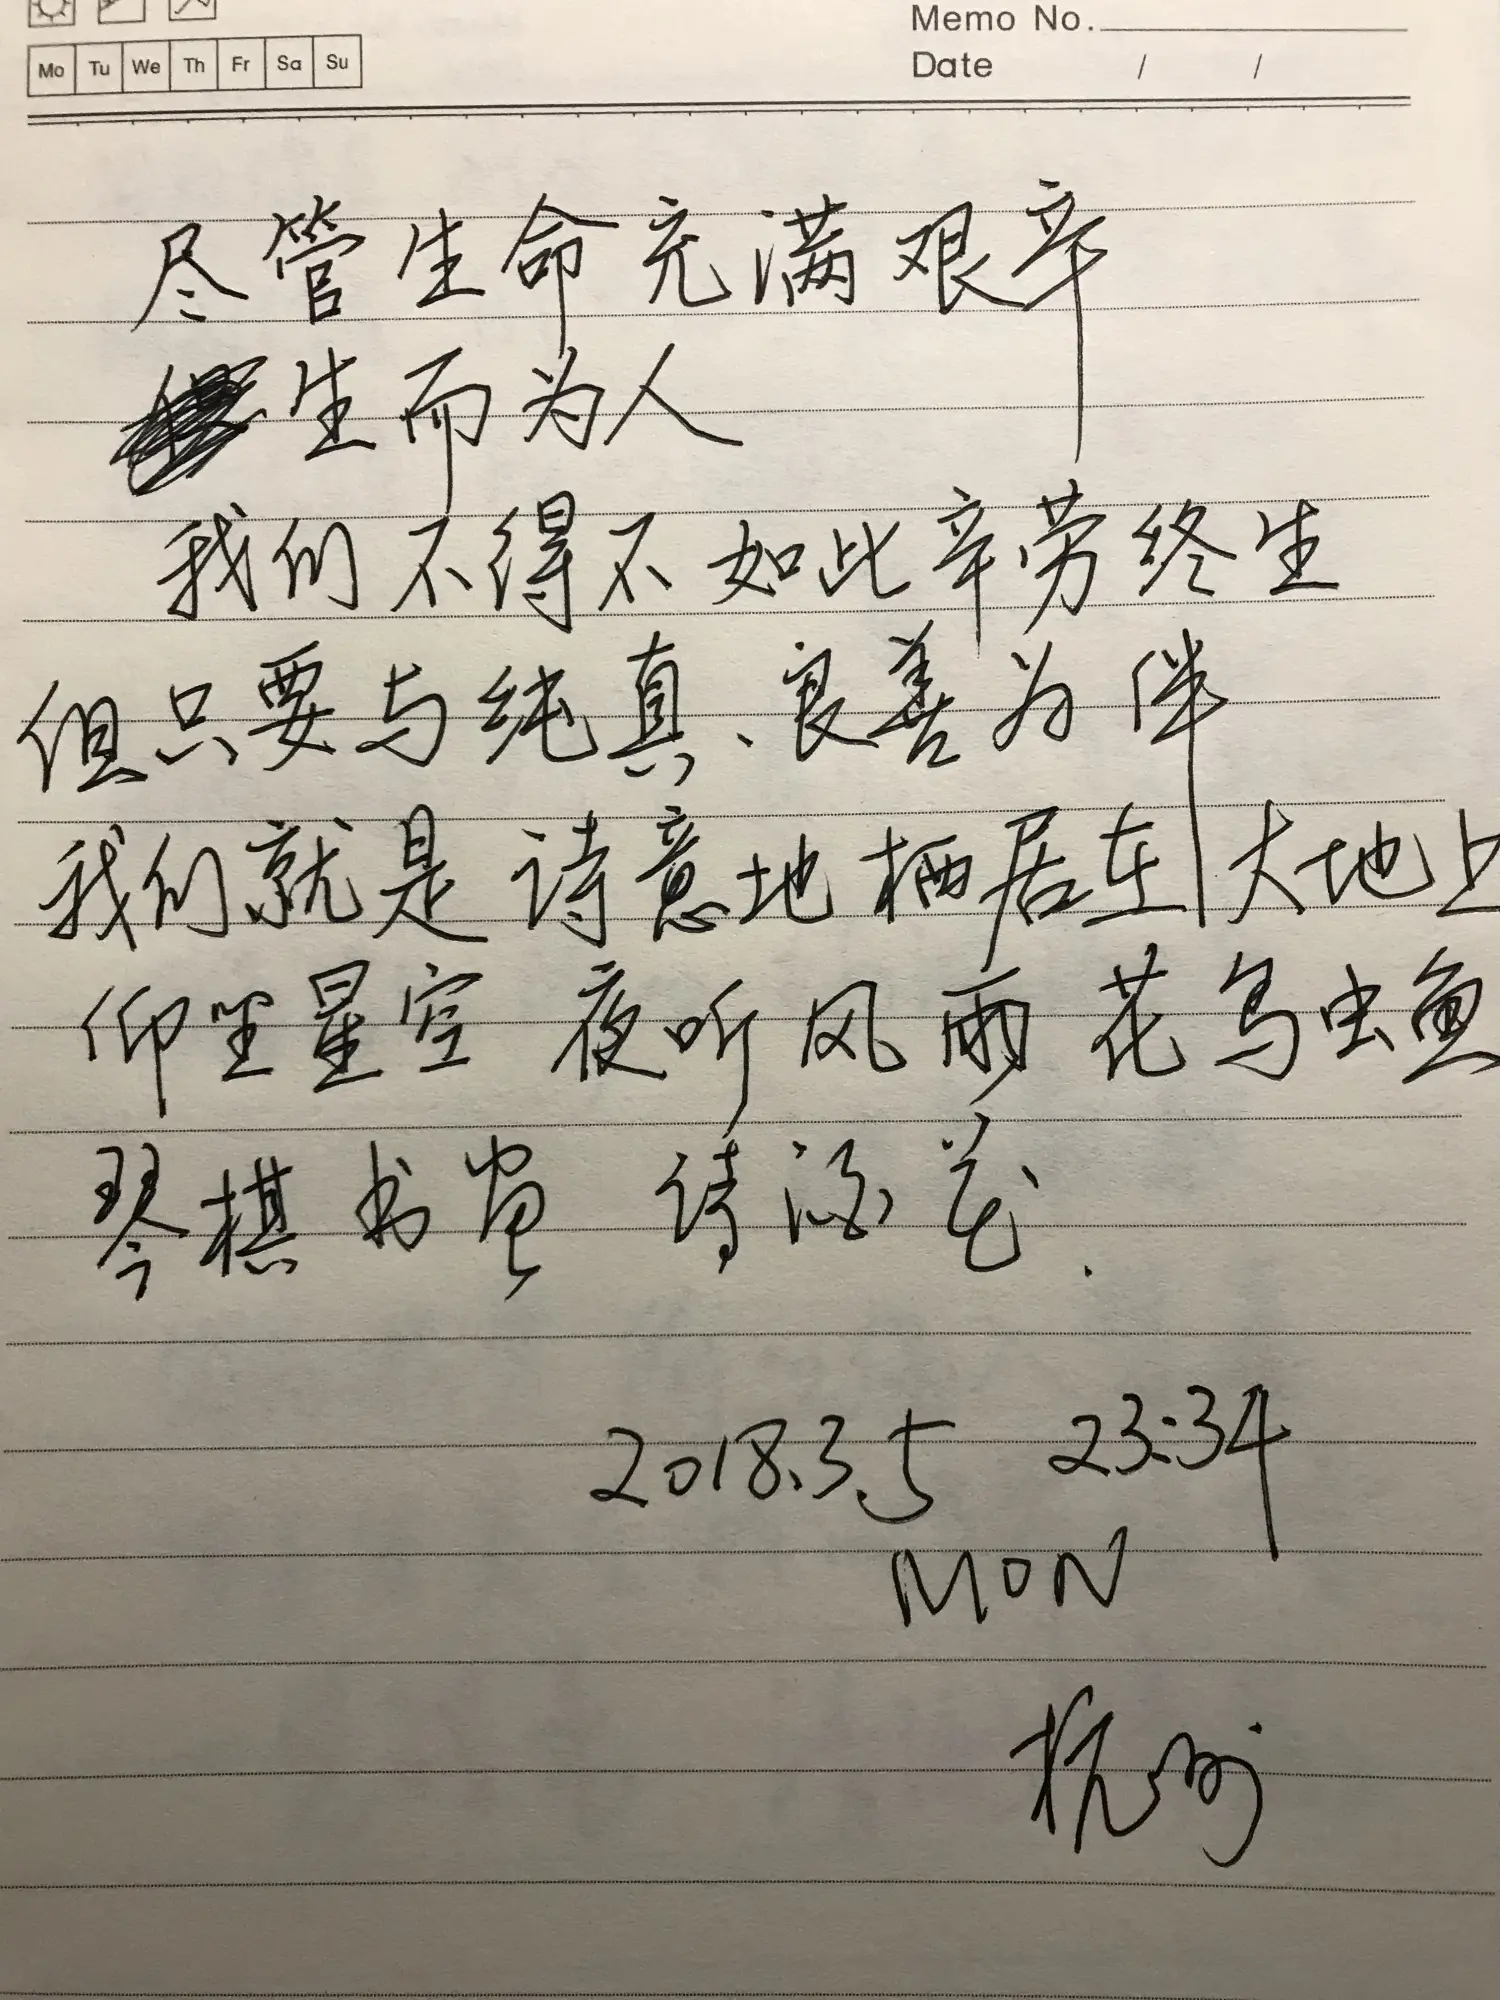 Memo No.
Mo Tu We Th Fr Sa Su
Date / /
尽管生命充满艰辛
生而为人
我们不得不如此辛劳终生
但只要与纯真、良善为伴
我们就是诗意地栖居在大地上
仰望星空 夜听风雨 花鸟虫鱼
琴棋书画 诗酒花.
2018.3.5 23:34
MON
杭州